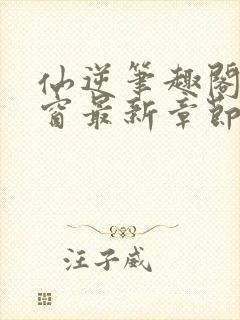 仙逆笔趣阁
窗最新章节
汪子威